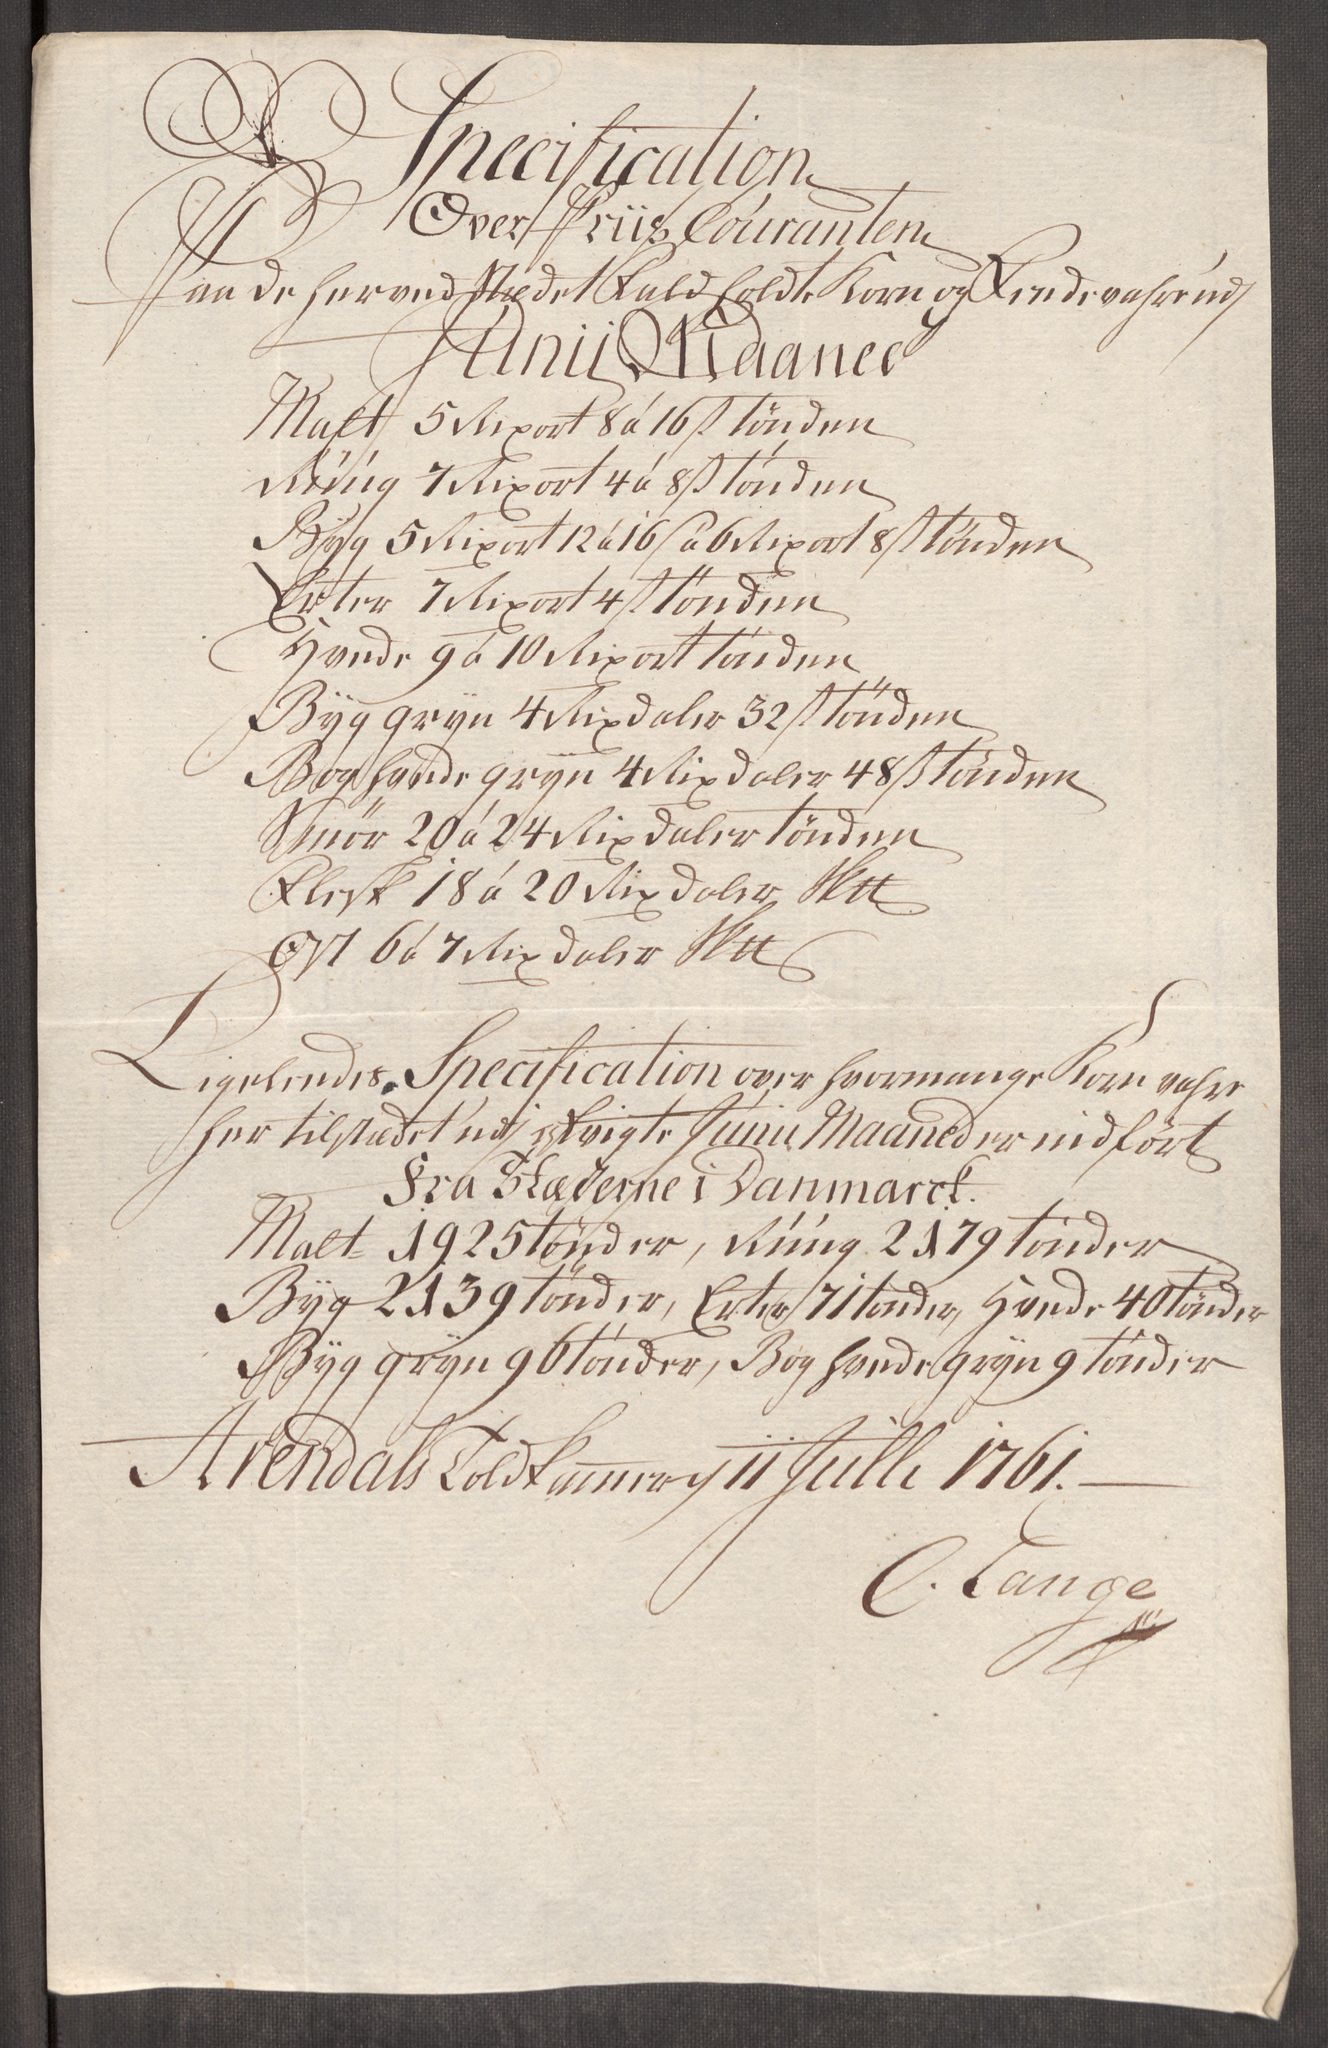 Specification
Over Priis Couranten
Paa de her ved Stædet fald holdte Korn og Fædevahre udj
Junii Maaned
Malt 5 Rixort 8 á 16 ß tönden
Rúúg 7 Rixort 4 á 8 ß tönden
Býg 5 Rixort 12 á 16 ß á 6 Rixort 8 ß tönden
Erter 7 Rixort 4 ß tönden
Hvede 9 á 10 Rixort tönden
Býg grýn 4 Rixdaler 32 ß tönden
Bog hvede grýn 4 Rixdaler 48 ß tönden
Smör 20 á 24 Rixdaler tönden
Flesk 18 á 20 Rixdaler
Ost 6 á 7 Rixdaler
Ligeledes Specification over hvormange Korn vahre
her til stædet udj Junii Maaned er indfört
Fra Stæderne i Danmarck.
Malt 1925 tönder, Rúúg 2179 tönder
Býg 2139 tönder, Erter 71 tönder, Hvede 40 tönder
Býg grýn 96 tönder, Bog hvede grýn 9 tönder
Arendals Toldkammer 11 Julli 1761.
C. Lange